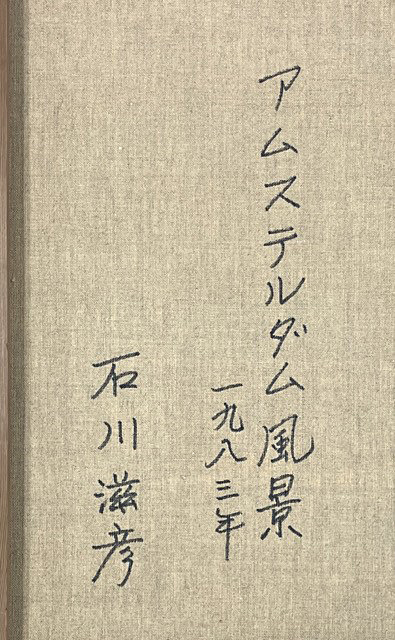 アムステルダム風景
一九八三年
石川滋彦